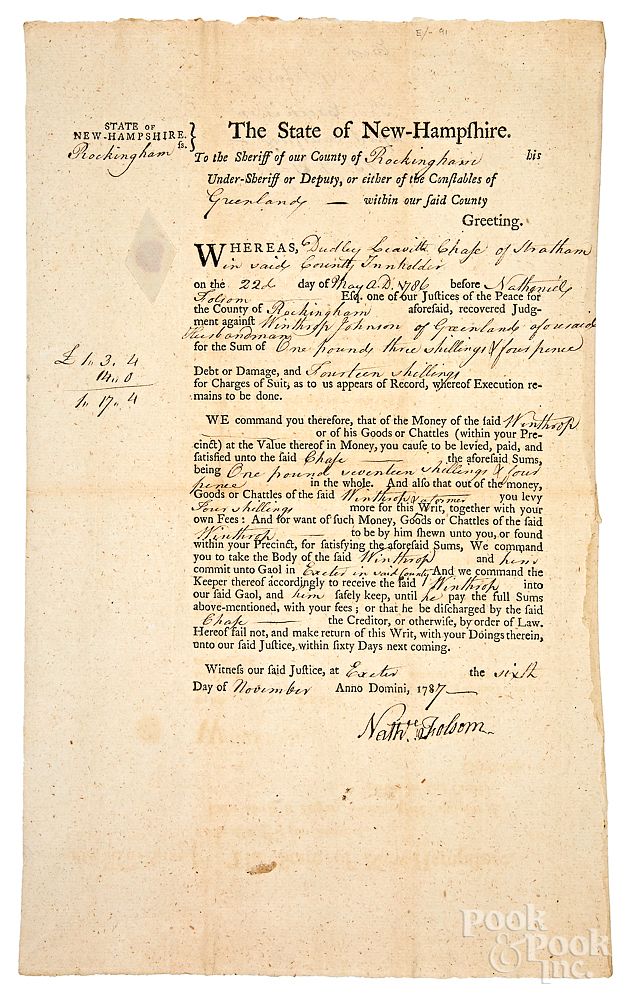 E/- 91
STATE OF
NEW-HAMPSHIRE. }
Rockingham ss.
The State of New-Hampſhire.
To the Sheriff of our County of Rockingham his
Under-Sheriff or Deputy, or either of the Conſtables of
Greenland — within our ſaid County
Greeting.
WHEREAS, Dudley Leavitt Chase of Stratham
in said County Innholder
on the 22d day of May A.D. 1786 before Nathaniel
Folsom Eſq. one of our Juſtices of the Peace for
the County of Rockingham aforeſaid, recovered Judg-
ment againſt Winthrop Johnson of Greenland aforesaid
Husbandman
for the Sum of One pounds three shillings & four pence
£ 1 „ 3 „ 4
14 „ 0
1 „ 17 „ 4
Debt or Damage, and Fourteen shillings
for Charges of Suit, as to us appears of Record, whereof Execution re-
mains to be done.
WE command you therefore, that of the Money of the ſaid Winthrop
— or of his Goods or Chattles (within your Pre-
cinct) at the Value thereof in Money, you cauſe to be levied, paid, and
ſatisfied unto the ſaid Chase — the aforeſaid Sums,
being One pound seventeen shillings & four
pence in the whole. And alſo that out of the money,
Goods or Chattles of the ſaid Winthrop & a former you levy
Four shillings more for this Writ, together with your
own Fees : And for want of ſuch Money, Goods or Chattles of the ſaid
Winthrop — to be by him ſhewn unto you, or found
within your Precinct, for ſatisfying the aforeſaid Sums, We command
you to take the Body of the ſaid Winthrop and him
commit unto Gaol in Exeter in said County And we command the
Keeper thereof accordingly to receive the ſaid Winthrop into
our ſaid Gaol, and him ſafely keep, until he pay the full Sums
above-mentioned, with your fees ; or that he be diſcharged by the ſaid
Chase — the Creditor, or otherwiſe, by order of Law.
Hereof fail not, and make return of this Writ, with your Doings therein,
unto our ſaid Juſtice, within ſixty Days next coming.
Witneſs our ſaid Juſtice, at Exeter the sixth
Day of November Anno Domini, 1787 —
Nath.e Folsom
Pook
& Pook
Inc.